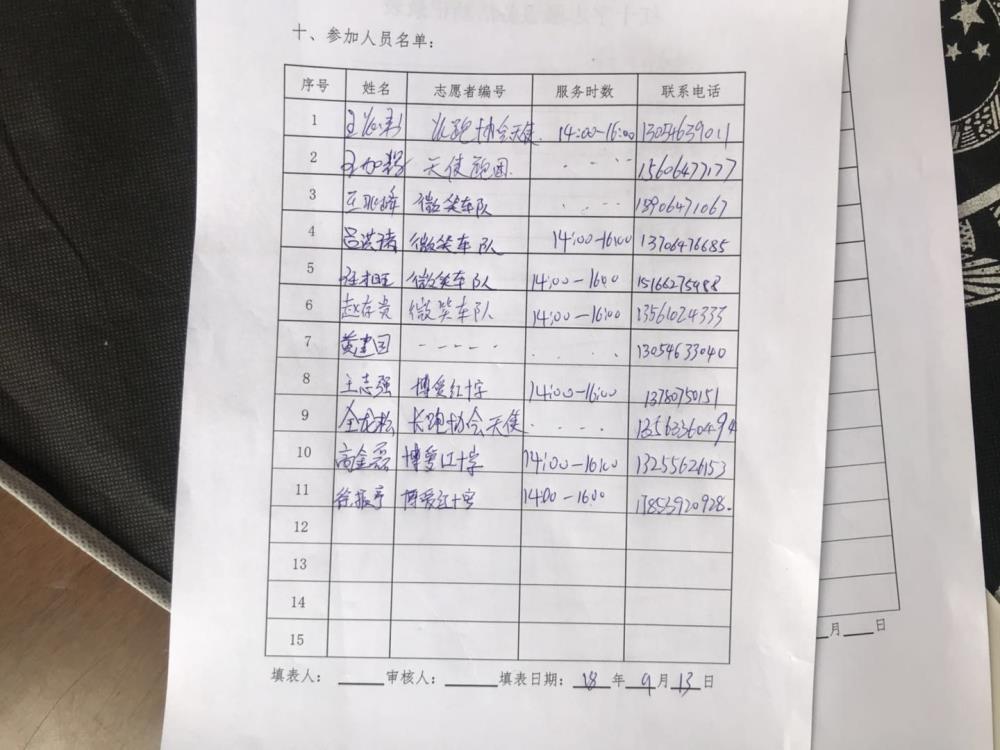 十、参加人员名单：
序号 姓名 志愿者编号 服务时数 联系电话
1 长跑协会天使 14:00-16:00 13054639011
2 王加彩 天使跑团 15606477177
3 微笑车队 13906471067
4 吕洪绪 微笑车队 14:00-16:00 13706476685
5 微笑车队 14:00-16:00 15166275988
6 赵存贵 微笑车队 14:00-16:00 13561024333
7 黄建国 13054633040
8 王志强 博爱红十字 14:00-16:00 13780750151
9 全龙松 长跑协会天使 13563360494
10 高金磊 博爱红十字 14:00-16:00 13255626153
11 徐振宇 博爱红十字 14:00-16:00 17853920928.
12
13
14
15
填表人： 审核人： 填表日期： 18 年 9 月 13 日
月 日